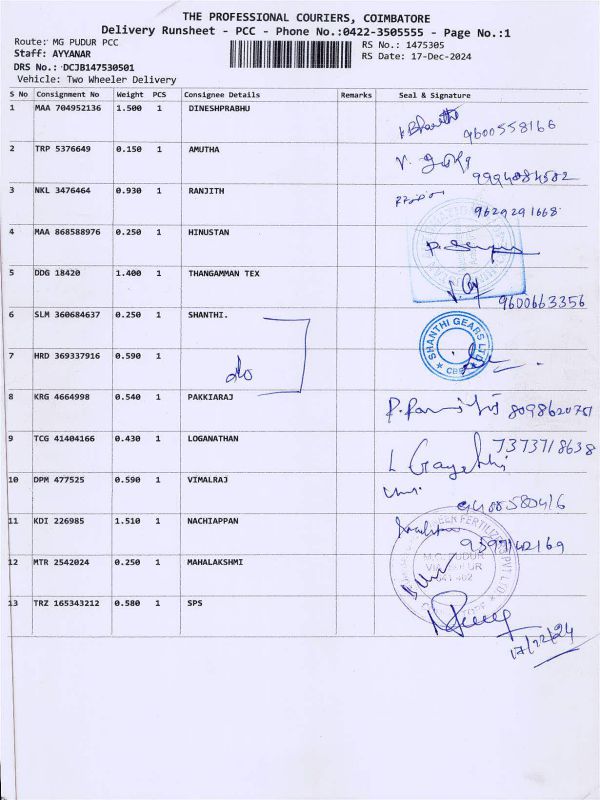 THE PROFESSIONAL COURIERS, COIMBATORE
Delivery Runsheet - PCC - Phone No.:0422-3505555 - Page No.:1
Route: MG PUDUR PCC RS No.: 1475305
Staff: AYYANAR RS Date: 17-Dec-2024
DRS No.: DCJB147530501
Vehicle: Two Wheeler Delivery
S No Consignment No Weight PCS Consignee Details Remarks Seal & Signature
1 MAA 704952136 1.500 1 DINESHPRABHU
9600558166
2 TRP 5376649 0.150 1 AMUTHA
9994084502
3 NKL 3476464 0.930 1 RANJITH
9629291668
4 MAA 868588976 0.250 1 HINUSTAN
5 DDG 18420 1.400 1 THANGAMMAN TEX
9600663356
6 SLM 360684637 0.250 1 SHANTHI.
SHANTHI GEARS LTD
7 HRD 369337916 0.590 1
do
8 KRG 4664998 0.540 1 PAKKIARAJ
8098620751
9 TCG 41404166 0.430 1 LOGANATHAN
7373718638
L Gayathri
10 DPM 477525 0.590 1 VIMALRAJ
9488580416
11 KDI 226985 1.510 1 NACHIAPPAN
9597142169
12 MTR 2542024 0.250 1 MAHALAKSHMI
M.G. PUDUR
641 402
13 TRZ 165343212 0.580 1 SPS
17/12/24